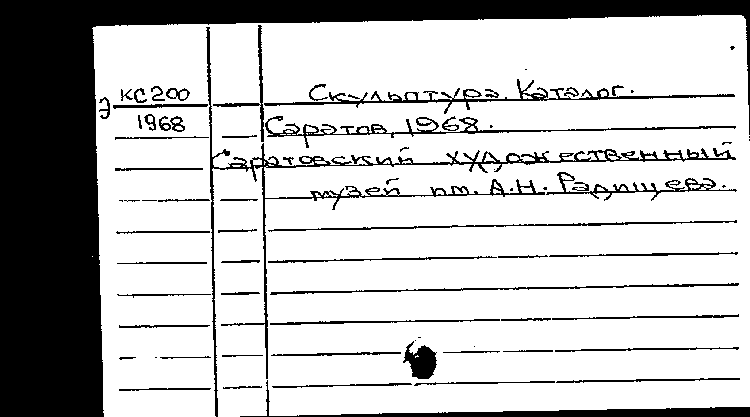 КС200
Э
1968
Скульптура. Каталог.
Саратов, 1968.
Саратовский художественный
музей им. А.Н. Радищева.